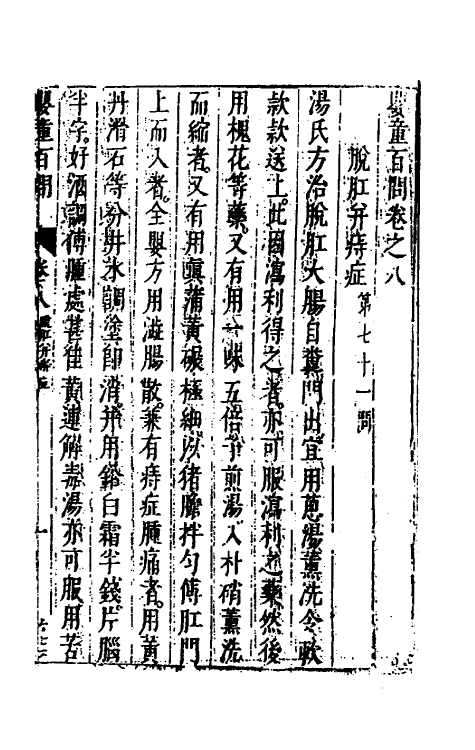 嬰童百問卷之八
脫肛并痔症第七十一問
湯氏方治脫肛大腸自糞門出宜用蔥湯薰洗令軟
款款送上。此因瀉利得之者。亦可服瀉利之藥然後
用槐花等藥。又有用一味五倍子煎湯入朴硝薰洗
而縮者。又有用真蒲黃碾極細以猪膽拌勻傅肛門
上而入者。全嬰方用滋腸散兼有痔症腫痛者。用黃
丹滑石等分井水調塗即消。并用鉛白霜半錢。片腦
半字。好酒調傅腫處甚佳黃連解毒湯亦可服。用苦
嬰童百問 卷八 一